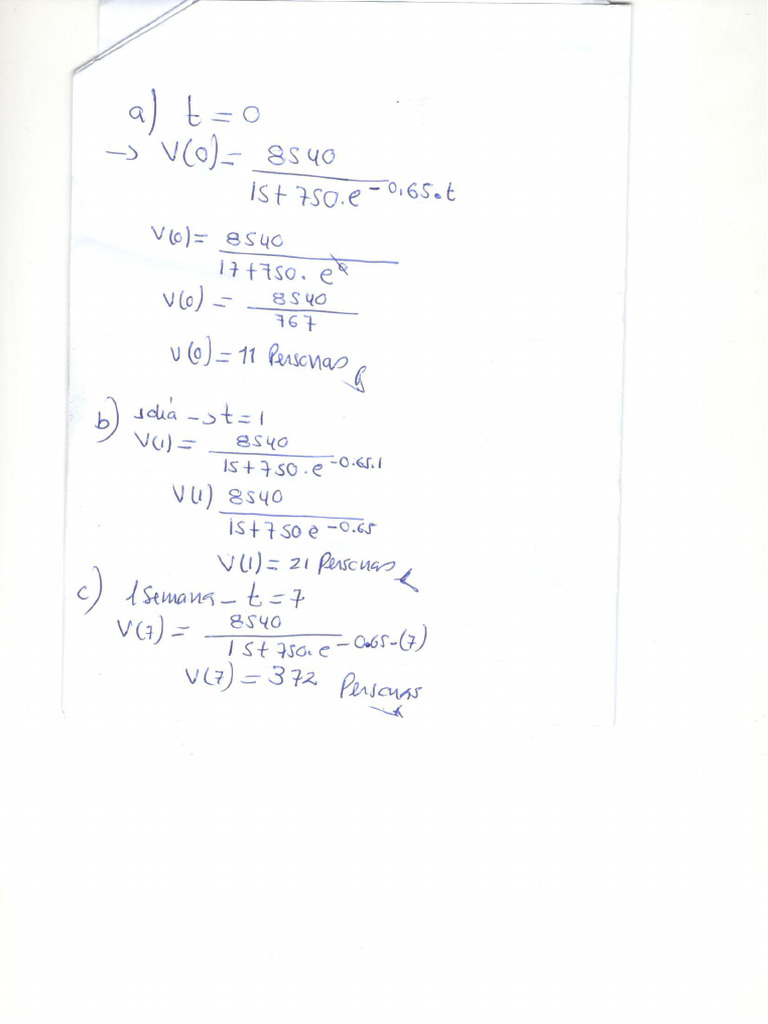 a) t = 0
→ V(0) = 8540 / 15 + 750.e^-0,65.t
V(0) = 8540 / 17 + 750. e^0
V(0) = 8540 / 767
V(0) = 11 Personas
b) 1 diá → t = 1
V(1) = 8540 / 15 + 750.e^-0.65.1
V(1) 8540 / 15 + 750 e^-0.65
V(1) = 21 Personas
c) 1 Semana - t = 7
V(7) = 8540 / 15 + 750.e^-0.65-(7)
V(7) = 372 Personas